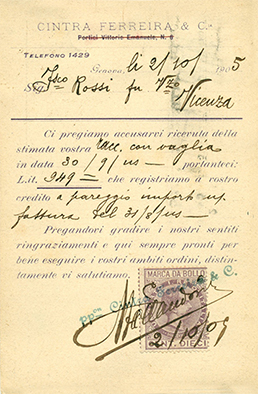 CINTRA FERREIRA & C.
Portici Vittorio Emanuele, N. 6
TELEFONO 1429
Genova, li 2/10/ 1905
Sig. Fsco Rossi fu Vzo
Vicenza
Ci pregiamo accusarvi ricevuta della
stimata vostra Racc. con vaglia
in data 30/9/us — portanteci:
L.it. 949= che registriamo a vostro
credito a pareggio import ns/
fattura del 31/8/us —
Pregandovi gradire i nostri sentiti
ringraziamenti e qui sempre pronti per
bene eseguire i vostri ambiti ordini, distin-
tamente vi salutiamo.
MARCA DA BOLLO
Ppn. Cintra Ferreira & C.
2/10/05
CENT. DIECI